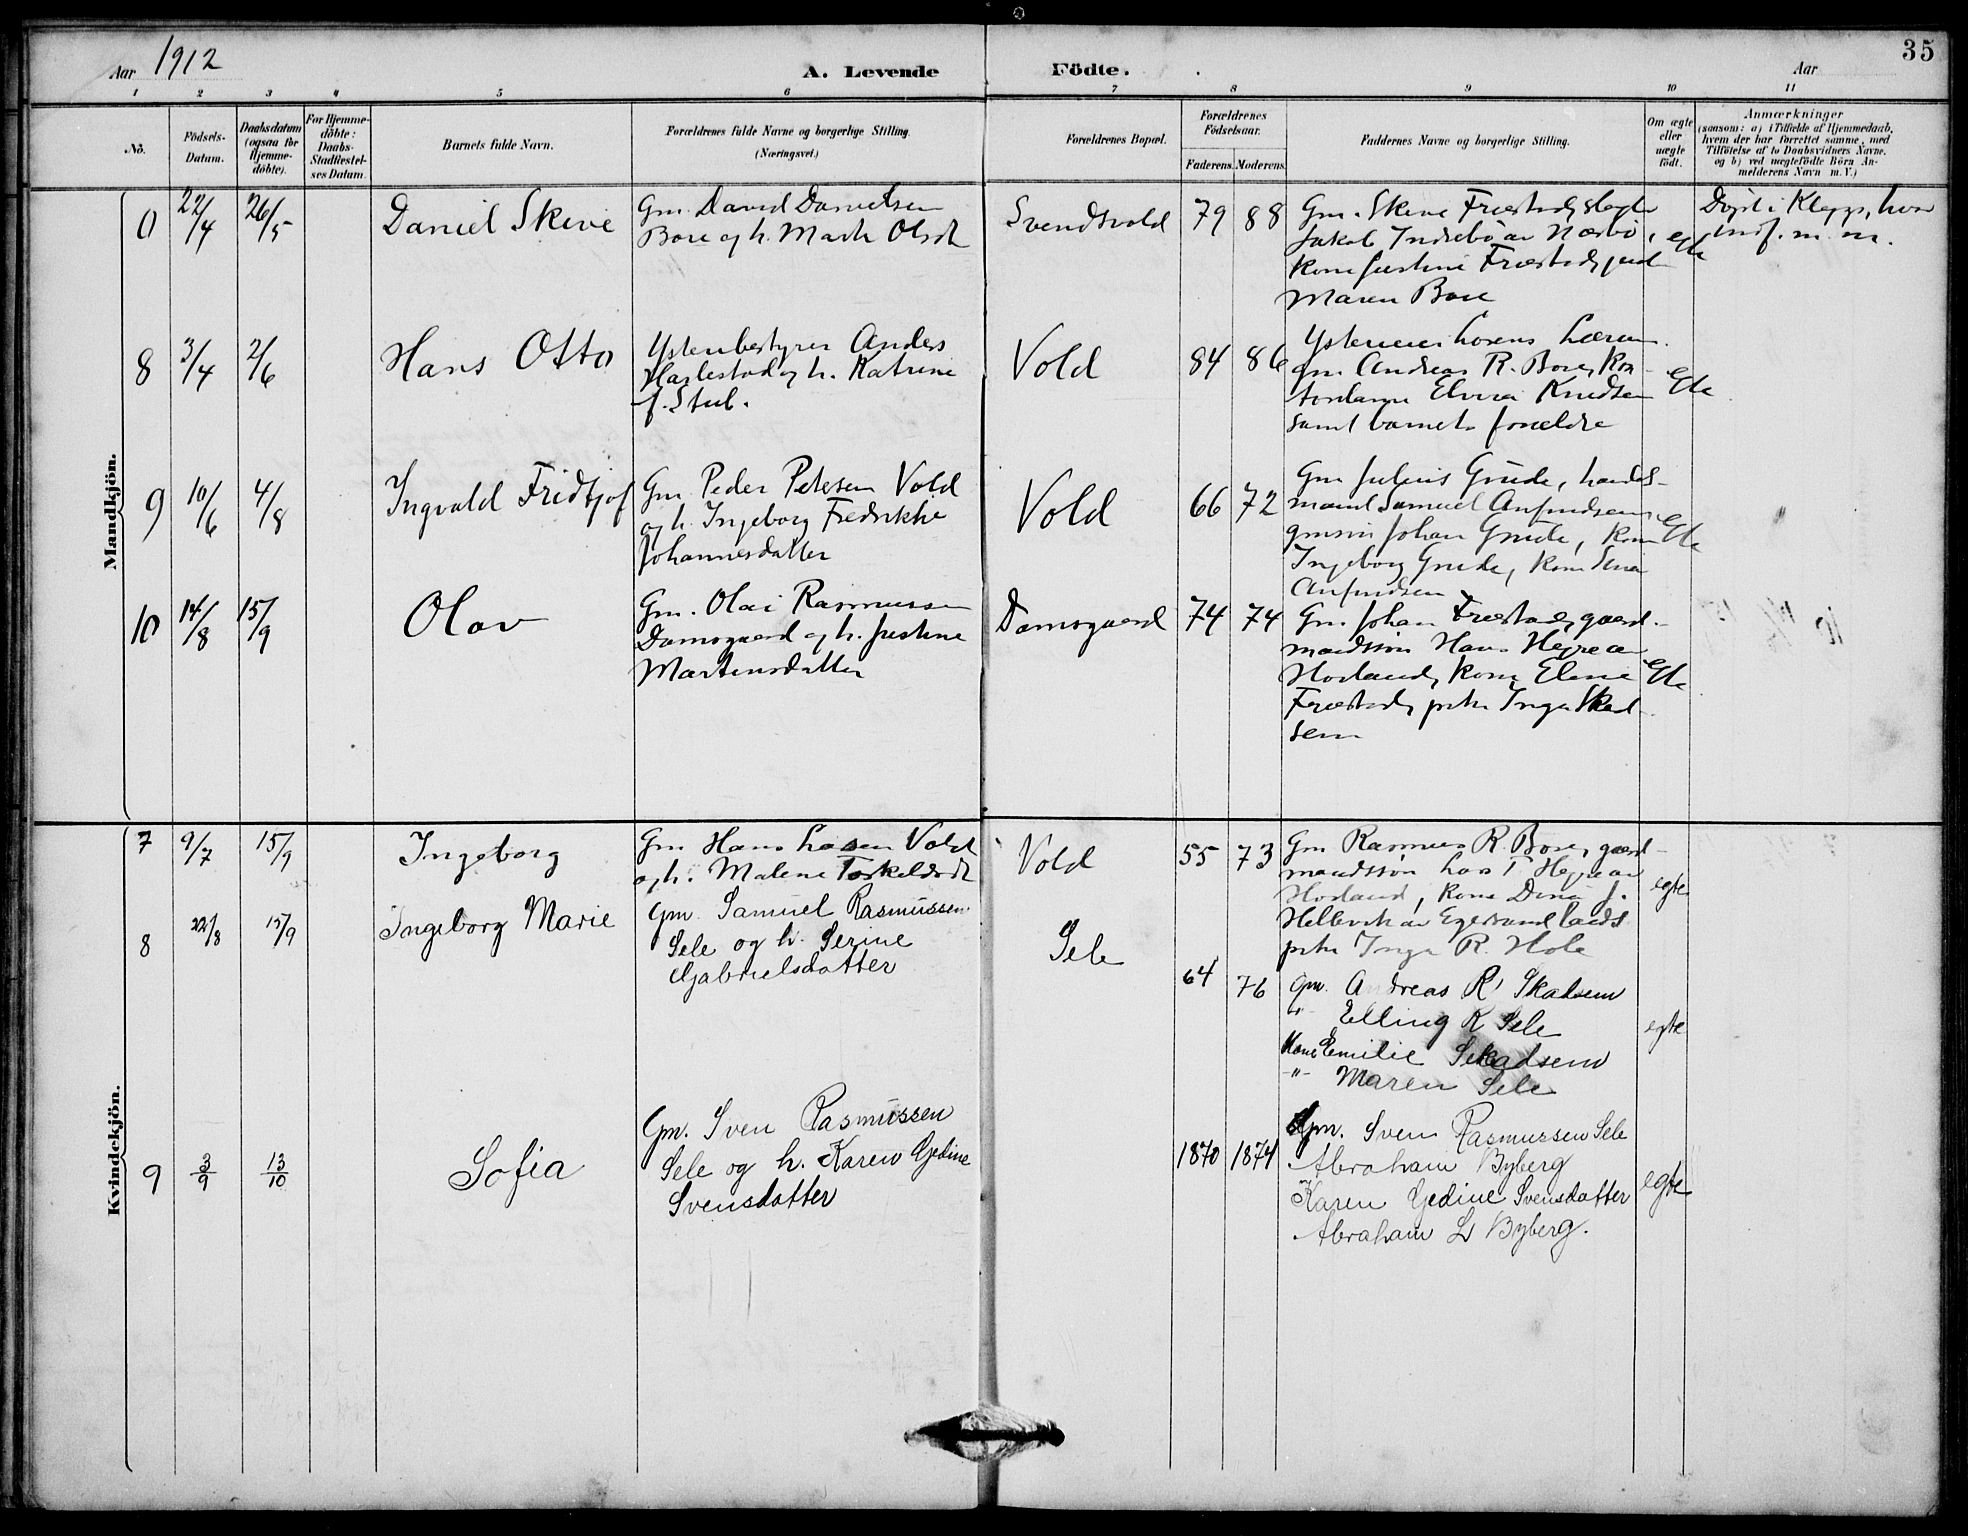 35
Aar 1912
A. Levende Födte.
Aar
1 2 3 4 5 6 7 8 9 10 11
Nö.
Födsels-Datum.
Daabsdatum (ogsaa for Hjemme-döbte).
For Hjemme-döbte: Daabs-Stadfæstel-ses Datum.
Barnets fulde Navn.
Forældrenes fulde Navne og borgerlige Stilling.
(Næringsvei.)
Forældrenes Bopæl.
Forældrenes Födselsaar.
Faderens. Moderens.
Faddernes Navne og borgerlige Stilling.
Om ægte eller uægte födt.
Anmærkninger
(saasom: a) i Tilfælde af Hjemmedaab,
hvem der har forrettet samme, med
Tilföielse af to Daabsvidners Navne,
og b) ved uægtefödte Börn An-
melderens Navn m. V.)
Mandkjön.
0 22/4 26/5 Daniel Skeie
Gm. David Danielsen
Bore og h. Marta Olsdt
Svendsvold 79 88
Gm. Skeie Friestad,
Jakob Indrebö av Nærbö,
kone Justine Friestad,
Maren Bore
egte
Döpt i Klepp, hvor
indf. m. m.
8 3/4 2/6 Hans Otto
Ysteribestyrer Anders
Harlestad og h. Katrine
f. Stub.
Vold 84 86
gm. Andreas R. Bore, kon-
Elvira Knudsen
samt barnets forældre
egte
9 10/6 4/8 Ingvald Fridtjof
Gm. Peder Petersen Vold
og h. Ingeborg Fredrikke
Johannesdatter
Vold 66 72
Gm Julius Grude, handels-
mand Samuel Anfindsen
gmsøn Johan Grude, kone
Ingeborg Grude, kone
Anfindsen
egte
10 14/8 15/9 Olav
Gm. Olai Rasmussen
Damsgaard og h. Justine
Martinsdatter
Damsgaard 74 74
Gm. Johan Friestad, gaard-
mandssön Hans Hegre av
Horland, kone Elene
Friestad, pike Inga Skad-
sem
egte
Kvindekjön.
7 9/7 15/9 Ingeborg
Gm. Hans Larsen Vold
og h. Malene Torkeldsdt
Vold 55 73
Gm Rasmus R. Bore, gaard-
mandssön Lars T Hegre av
Horland, kone Dina J.
Hellvik av Egersund lands.
pike Inga R. Hole
egte
8 22/8 15/9 Ingeborg Marie
Gm. Samuel Rasmussen
Sele og h. Serine
Gabrielsdatter
Sele 64 76
Gm. Andreas R Skadsem
-"- Elling R Sele
Kone Emilie Skadsem
-"- Maren Sele
egte
9 3/9 13/10 Sofia
Gm. Sven Rasmussen
Sele og h. Karen Gedine
Svensdatter
1870 1874
Gm. Sven Rasmussen Sele
Abraham Byberg
Karen Gedine Svensdatter
Abraham L Byberg.
egte